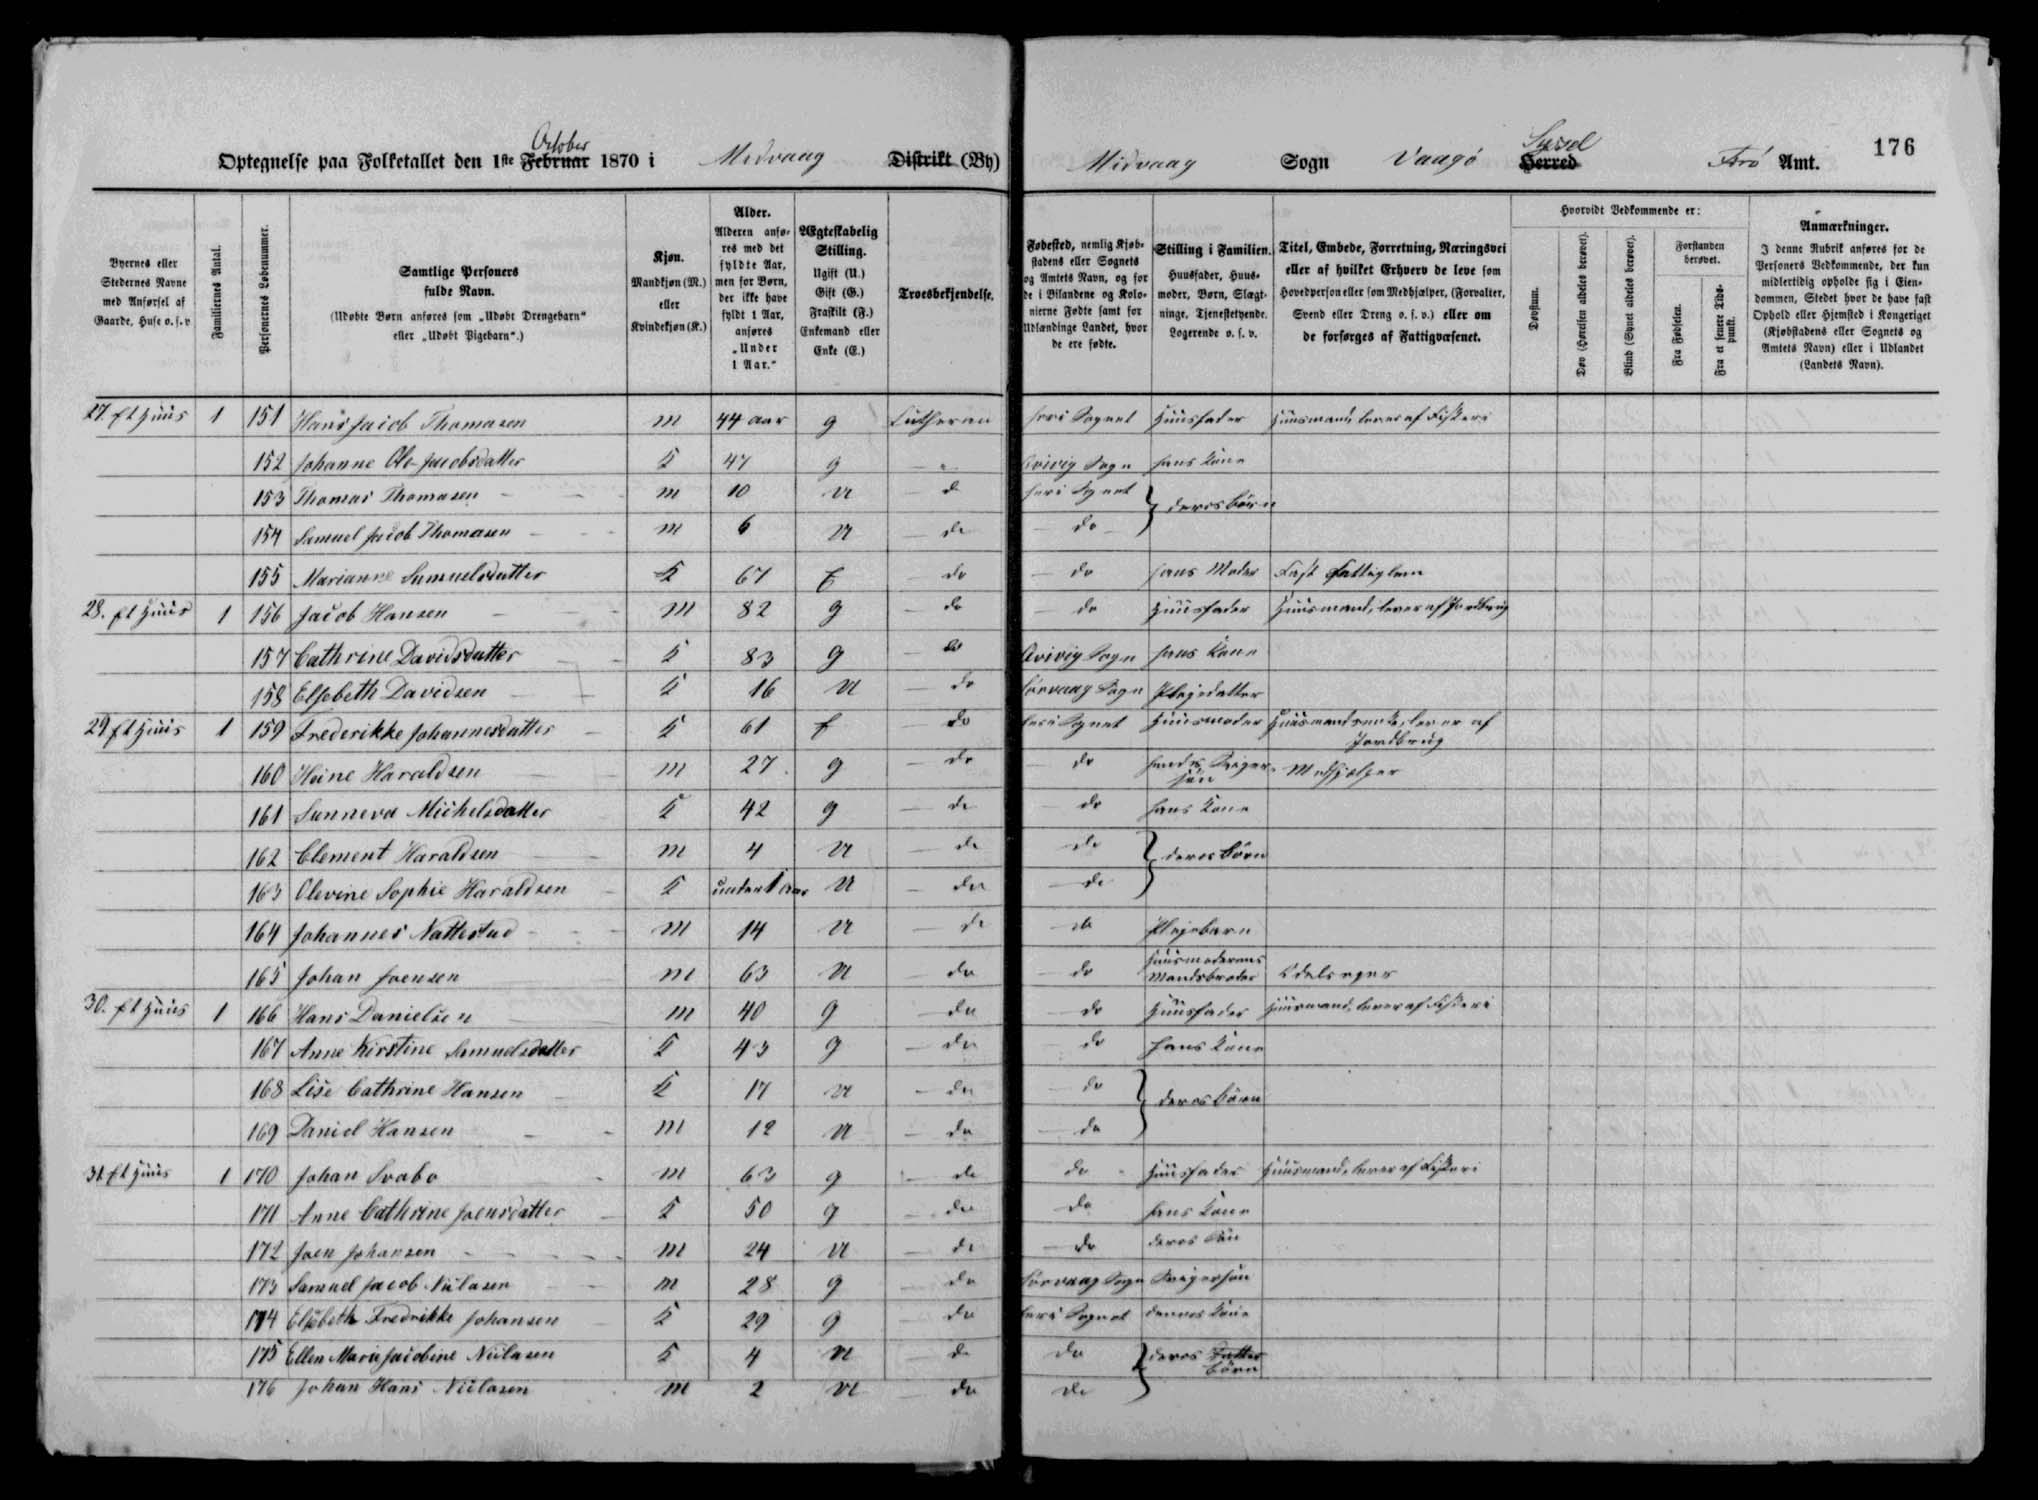 Optegnelse paa Folketallet den 1ste Februar October 1870 i Midvaag Distrikt (By)
Midvaag Sogn Vaagø Herred Syssel Færø Amt. 176
Byernes eller Stedernes Navne med Anførsel af Gaarde, Huse o. s. v
Familiernes Antal.
Personernes Løbenummer.
Samtlige Personers fulde Navn.
(Udøbte Børn anføres som „Udøbt Drengebarn“ eller „Udøbt Pigebarn“.)
Kjøn. Mandkjøn (M.) eller Kvindekjøn (K.)
Alder. Alderen anføres med det fyldte Aar, men for Børn, der ikke have fyldt 1 Aar, anføres „Under 1 Aar.“
Ægteskabelig Stilling. Ugift (U.) Gift (G.) Fraskilt (F.) Enkemand eller Enke (E.)
Troesbekjendelse.
Fødested, nemlig Kjøbstadens eller Sognets og Amtets Navn, og for de i Bilandene og Kolonierne Fødte samt for Udlændinge Landet, hvor de ere fødte.
Stilling i Familien. Huusfader, Huusmoder, Børn, Slægtninge, Tjenestetyende, Logerende o. s. v.
Titel, Embede, Forretning, Næringsvei eller af hvilket Erhverv de leve som Hovedperson eller som Medhjælper, (Forvalter, Svend eller Dreng o. s. v.) eller om de forsørges af Fattigvæsenet.
Hvorvidt Vedkommende er:
Døvstum.
Døv (Hørelsen aldeles berøvet).
Blind (Synet aldeles berøvet).
Forstanden berøvet.
Fra Fødselen.
Fra et senere Tidspunkt.
Anmærkninger. I denne Rubrik anføres for de Personers Vedkommende, der kun midlertidig opholde sig i Eiendommen, Stedet hvor de have fast Ophold eller Hjemsted i Kongeriget (Kjøbstadens eller Sognets og Amtets Navn) eller i Udlandet (Landets Navn).
27. Et Huus 1 151 Hans Jacob Thomasen M 44 aar g Lutheran her i Sognet Huusfader Huusmand, lever af Fiskeri
152 Johanne Ole Jacobsdatter K 47 g Qvivig Sogn hans Kone
153 Thomas Thomasen M 10 U do her i Sognet deres børn
154 Samuel Jacob Thomasen M 6 U do do
155 Marianne Samuelsdatter K 67 E do do hans Moder Fast Fattiglem
28. Et Huus 1 156 Jacob Hansen M 82 g do do Huusfader Huusmand, lever af Jordbrug
157 Cathrine Davidsdatter K 83 g do Qvivig Sogn hans Kone
158 Elsebeth Davidsen K 16 U do Sørvaag Sogn Plejedatter
29 Et Huus 1 159 Frederikke Johannesdatter K 61 E do her i Sognet Huusmoder Huusmandsenke, lever af
Jordbrug
160 Heine Haraldsen M 27 g do do hendes Sviger-
søn Medhjælper
161 Sunneva Michelsdatter K 42 g do do hans Kone
162 Clement Haraldsen M 4 U do do deres børn
163 Olevine Sophie Haraldsen K under 1 aar U do do
164 Johannes Nattestad M 14 U do do Plejebarn
165 Johan Joensen M 63 U do do Huusmoderens
Mandsbroder Odelseyer
30. Et Huus 1 166 Hans Danielsen M 40 g do do Huusfader Huusmand, lever af Fiskeri
167 Anne Kirstine Samuelsdatter K 43 g do do hans Kone
168 Lise Cathrine Hansen K 17 U do do deres børn
169 Daniel Hansen M 12 U do do
31 Et Huus 1 170 Johan Svabo M 63 g do do Huusfader Huusmand, lever af Fiskeri
171 Anne Cathrine Joensdatter K 50 g do do hans Kone
172 Joen Johansen M 24 U do do deres Søn
173 Samuel Jacob Niclasen M 28 g do Sørvaag Sogn Svigersøn
174 Elsebeth Fredrikke Johansen K 29 g do her i Sognet dennes Kone
175 Ellen Marie Jacobine Niclasen K 4 U do do deres Datter
børn
176 Johan Hans Niclasen M 2 U do do